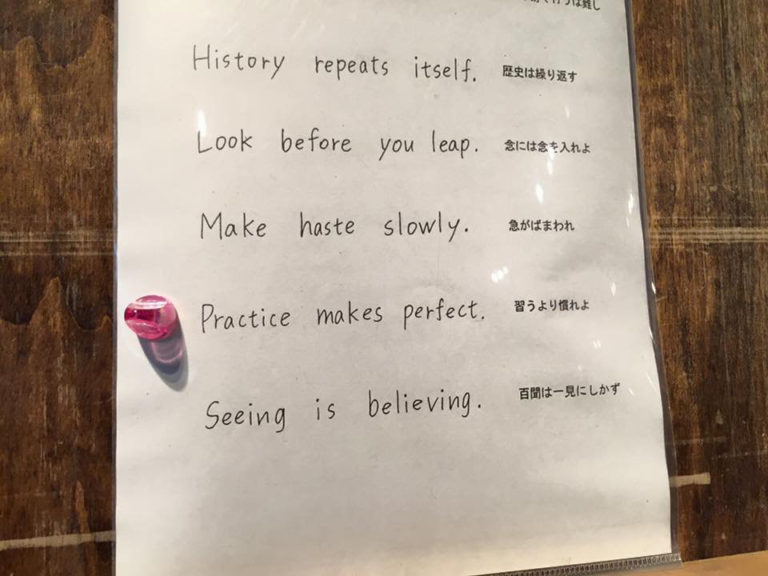 行うは難し
History repeats itself. 歴史は繰り返す
Look before you leap. 念には念を入れよ
Make haste slowly. 急がばまわれ
Practice makes perfect. 習うより慣れよ
Seeing is believing. 百聞は一見にしかず